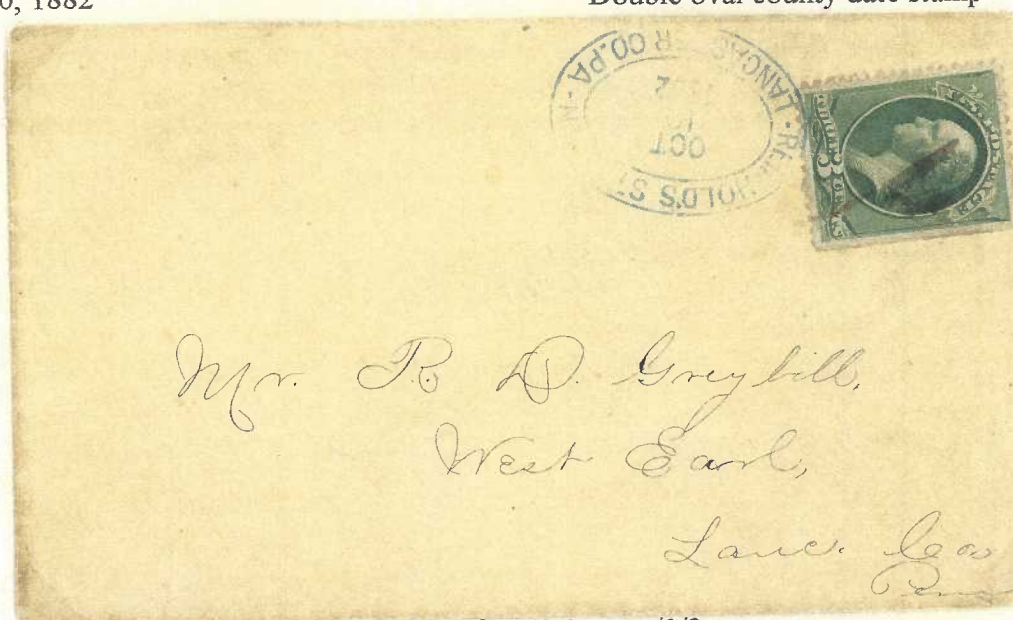 0, 1882
Double oval county date stamp
LANCASTER CO. PA
OCT
2
Mr. R. D. Greybill,
West Earl,
Lanc. Co